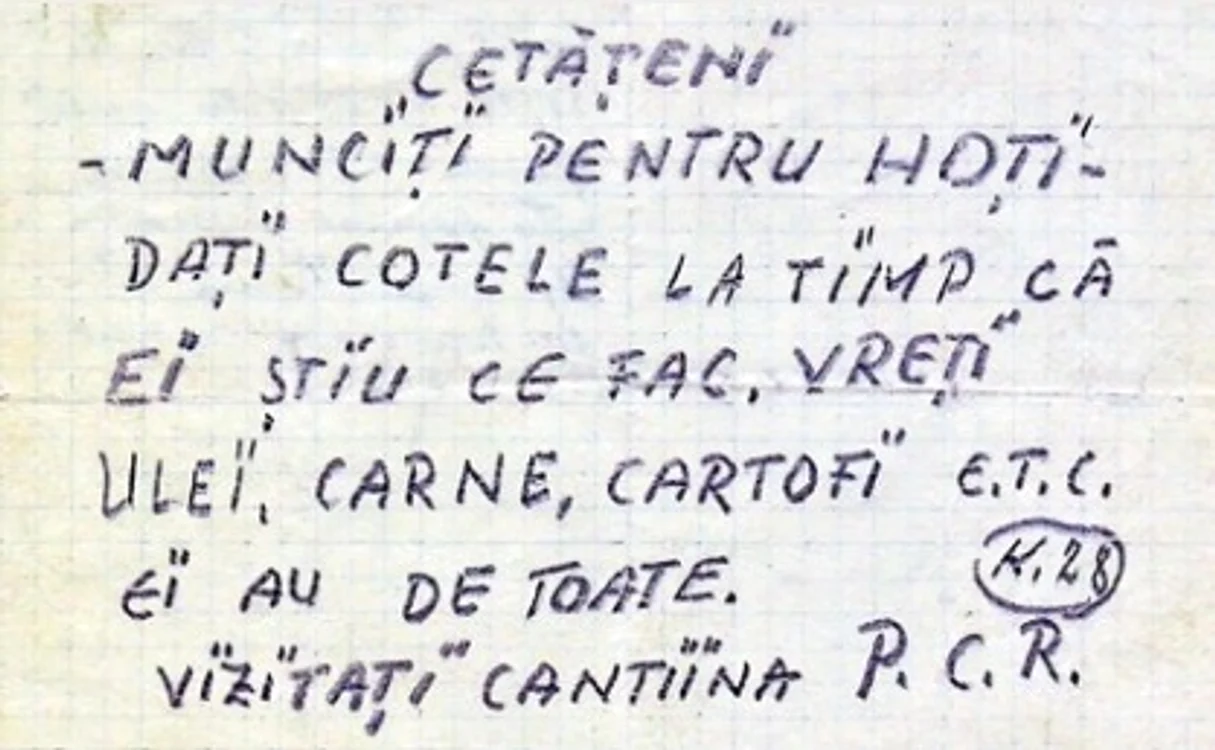 CETĂȚENÏ
- MUNCÏȚÏ PENTRU HOȚÏ -
DAȚÏ COTELE LA TÏMP CĂ
EÏ ȘTÏU CE FAC. VREȚÏ
ULEÏ, CARNE, CARTOFÏ E.T.C.
EÏ AU DE TOATE.
K.28
VÏZÏTAȚÏ CANTÏÏNA P.C.R.